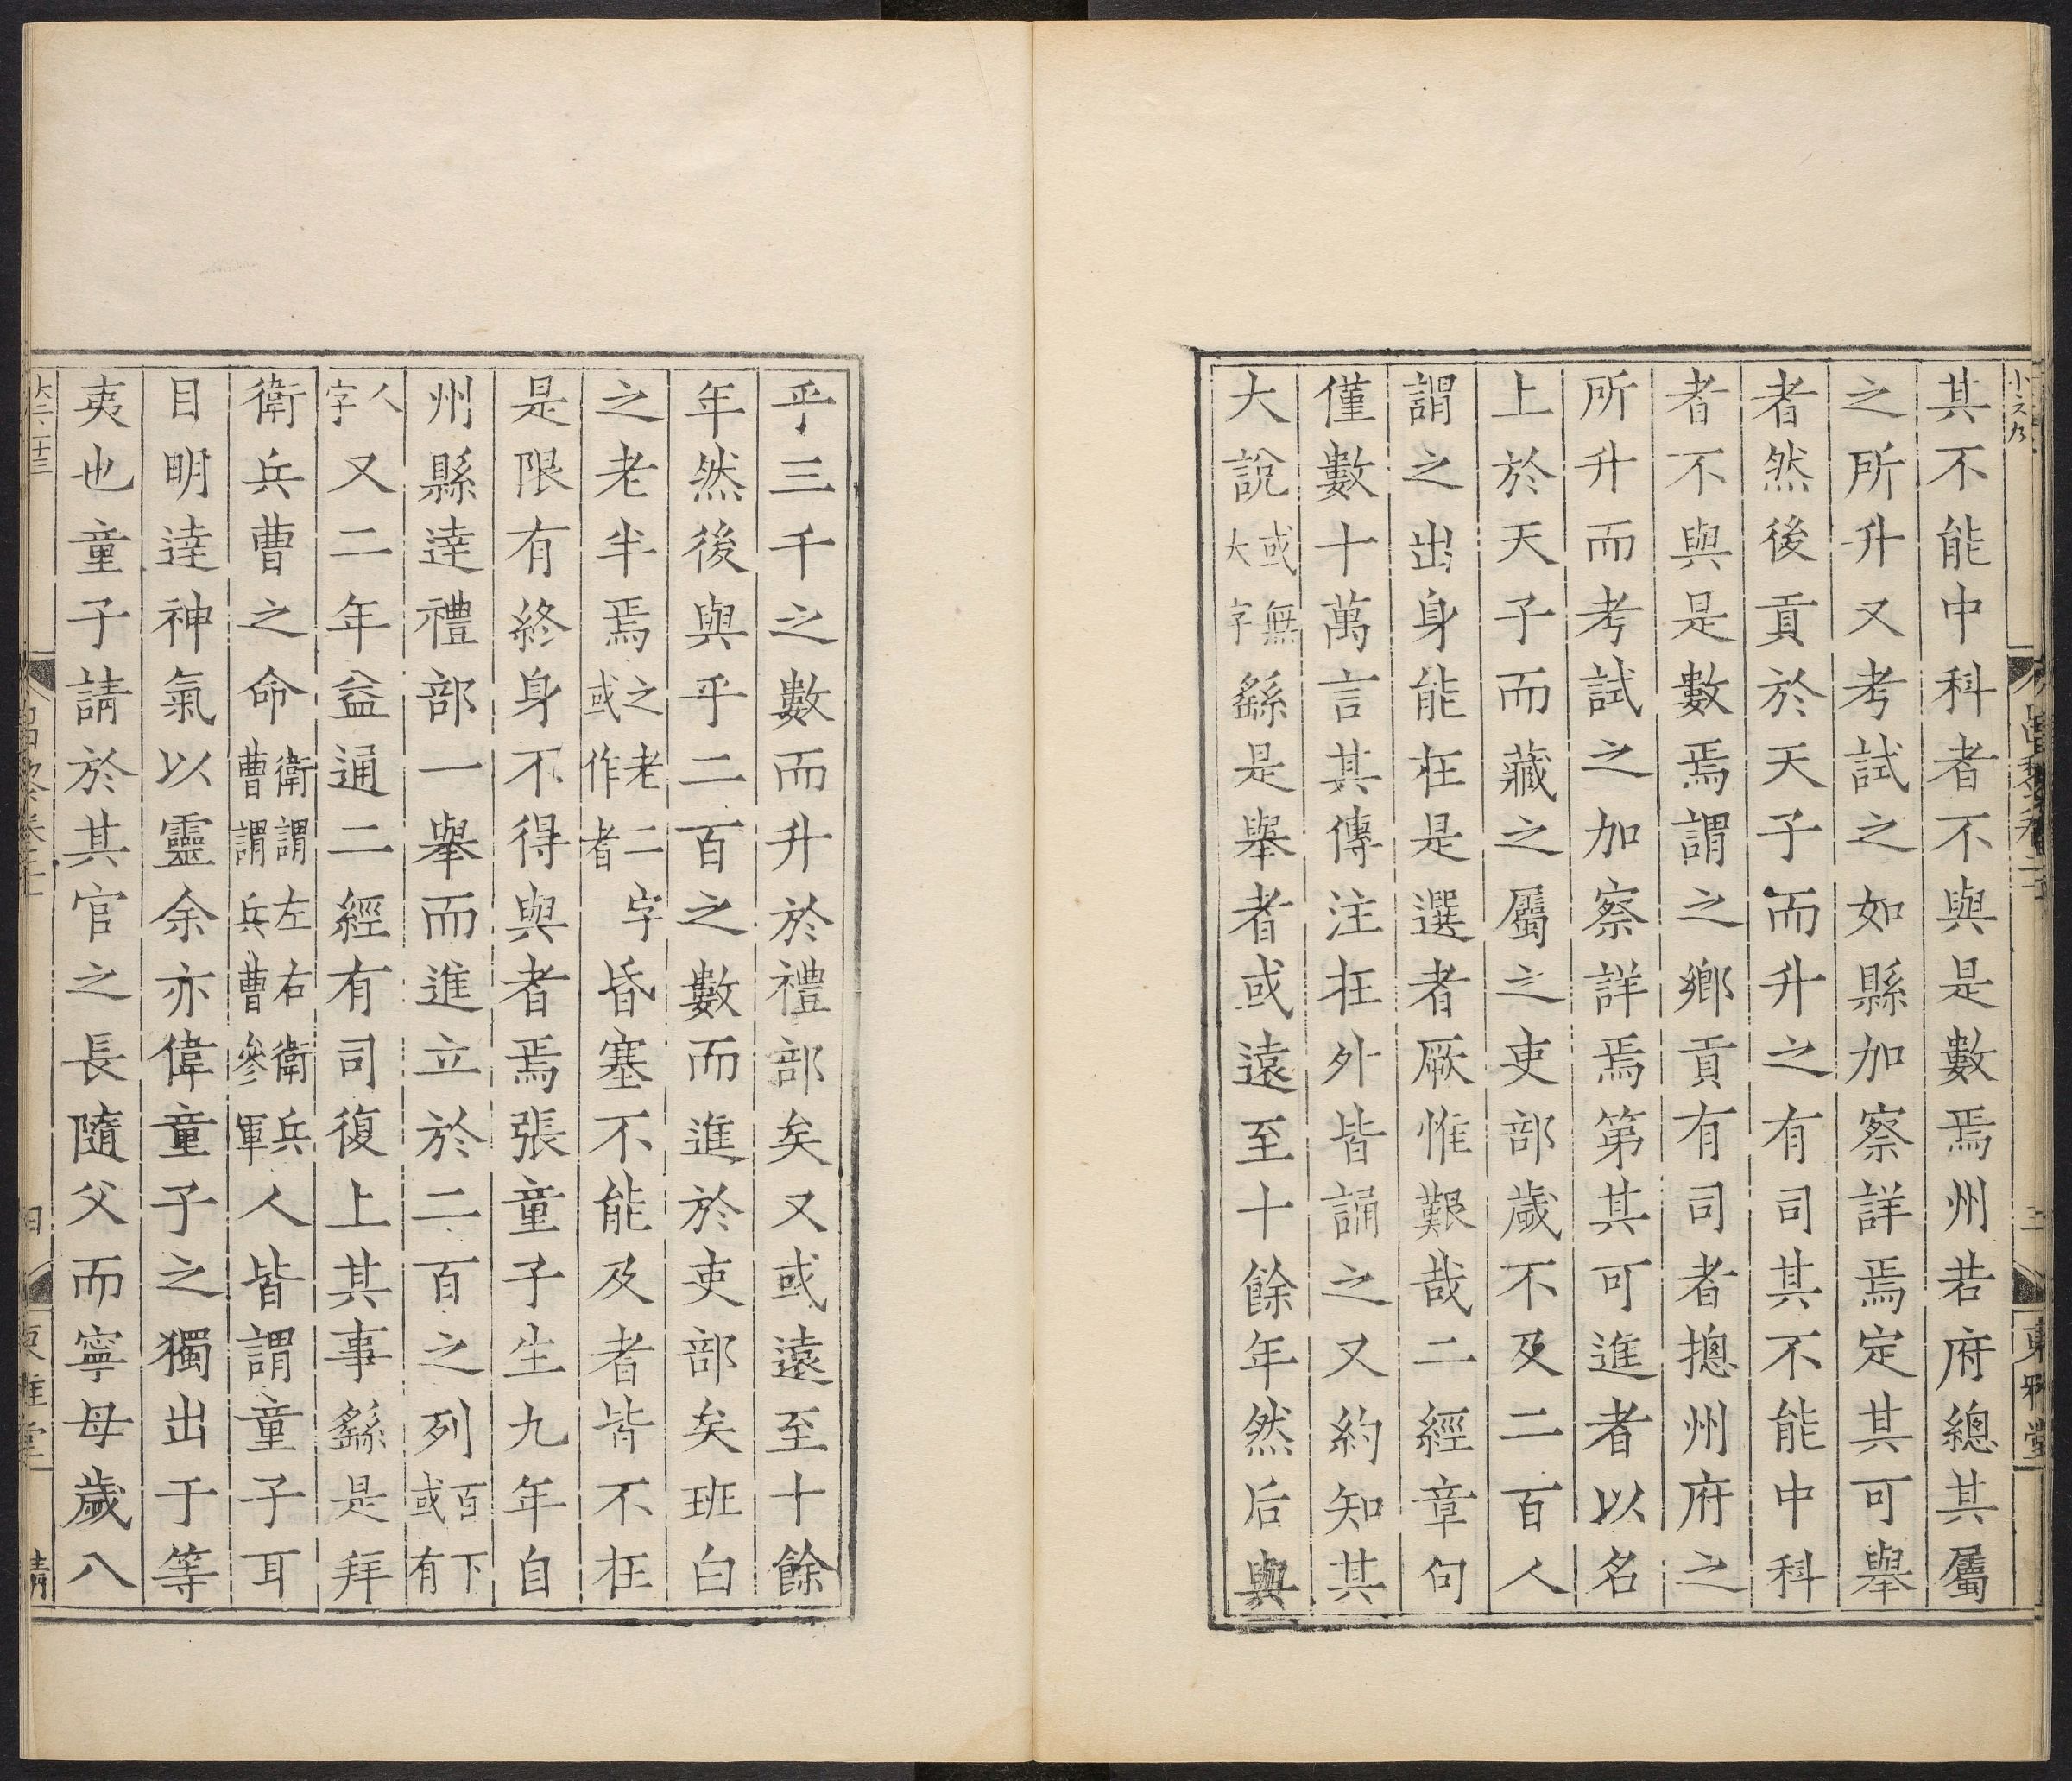 其不能中科者不與是數焉州若府總其屬
之所升又考試之如縣加察詳焉定其可舉
者然後貢於天子而升之有司其不能中科
者不與是數焉謂之鄉貢有司者摠州府之
所升而考試之加察詳焉第其可進者以名
上於天子而藏之屬之吏部歲不及二百人
謂之出身能在是選者厥惟艱哉二經章句
僅數十萬言其傳注在外皆誦之又約知其
大說或無大字繇是舉者或遠至十餘年然后與
乎三千之數而升於禮部矣又或遠至十餘
年然後與乎二百之數而進於吏部矣班白
之老半焉之老二字或作者昏塞不能及者皆不在
是限有終身不得與者焉張童子生九年自
州縣達禮部一舉而進立於二百之列百下或有
人字又二年益通二經有司復上其事繇是拜
衛兵曹之命衛謂左右衛兵曹謂兵曹參軍人皆謂童子耳
目明達神氣以靈余亦偉童子之獨出于等
夷也童子請於其官之長隨父而寧母歲八